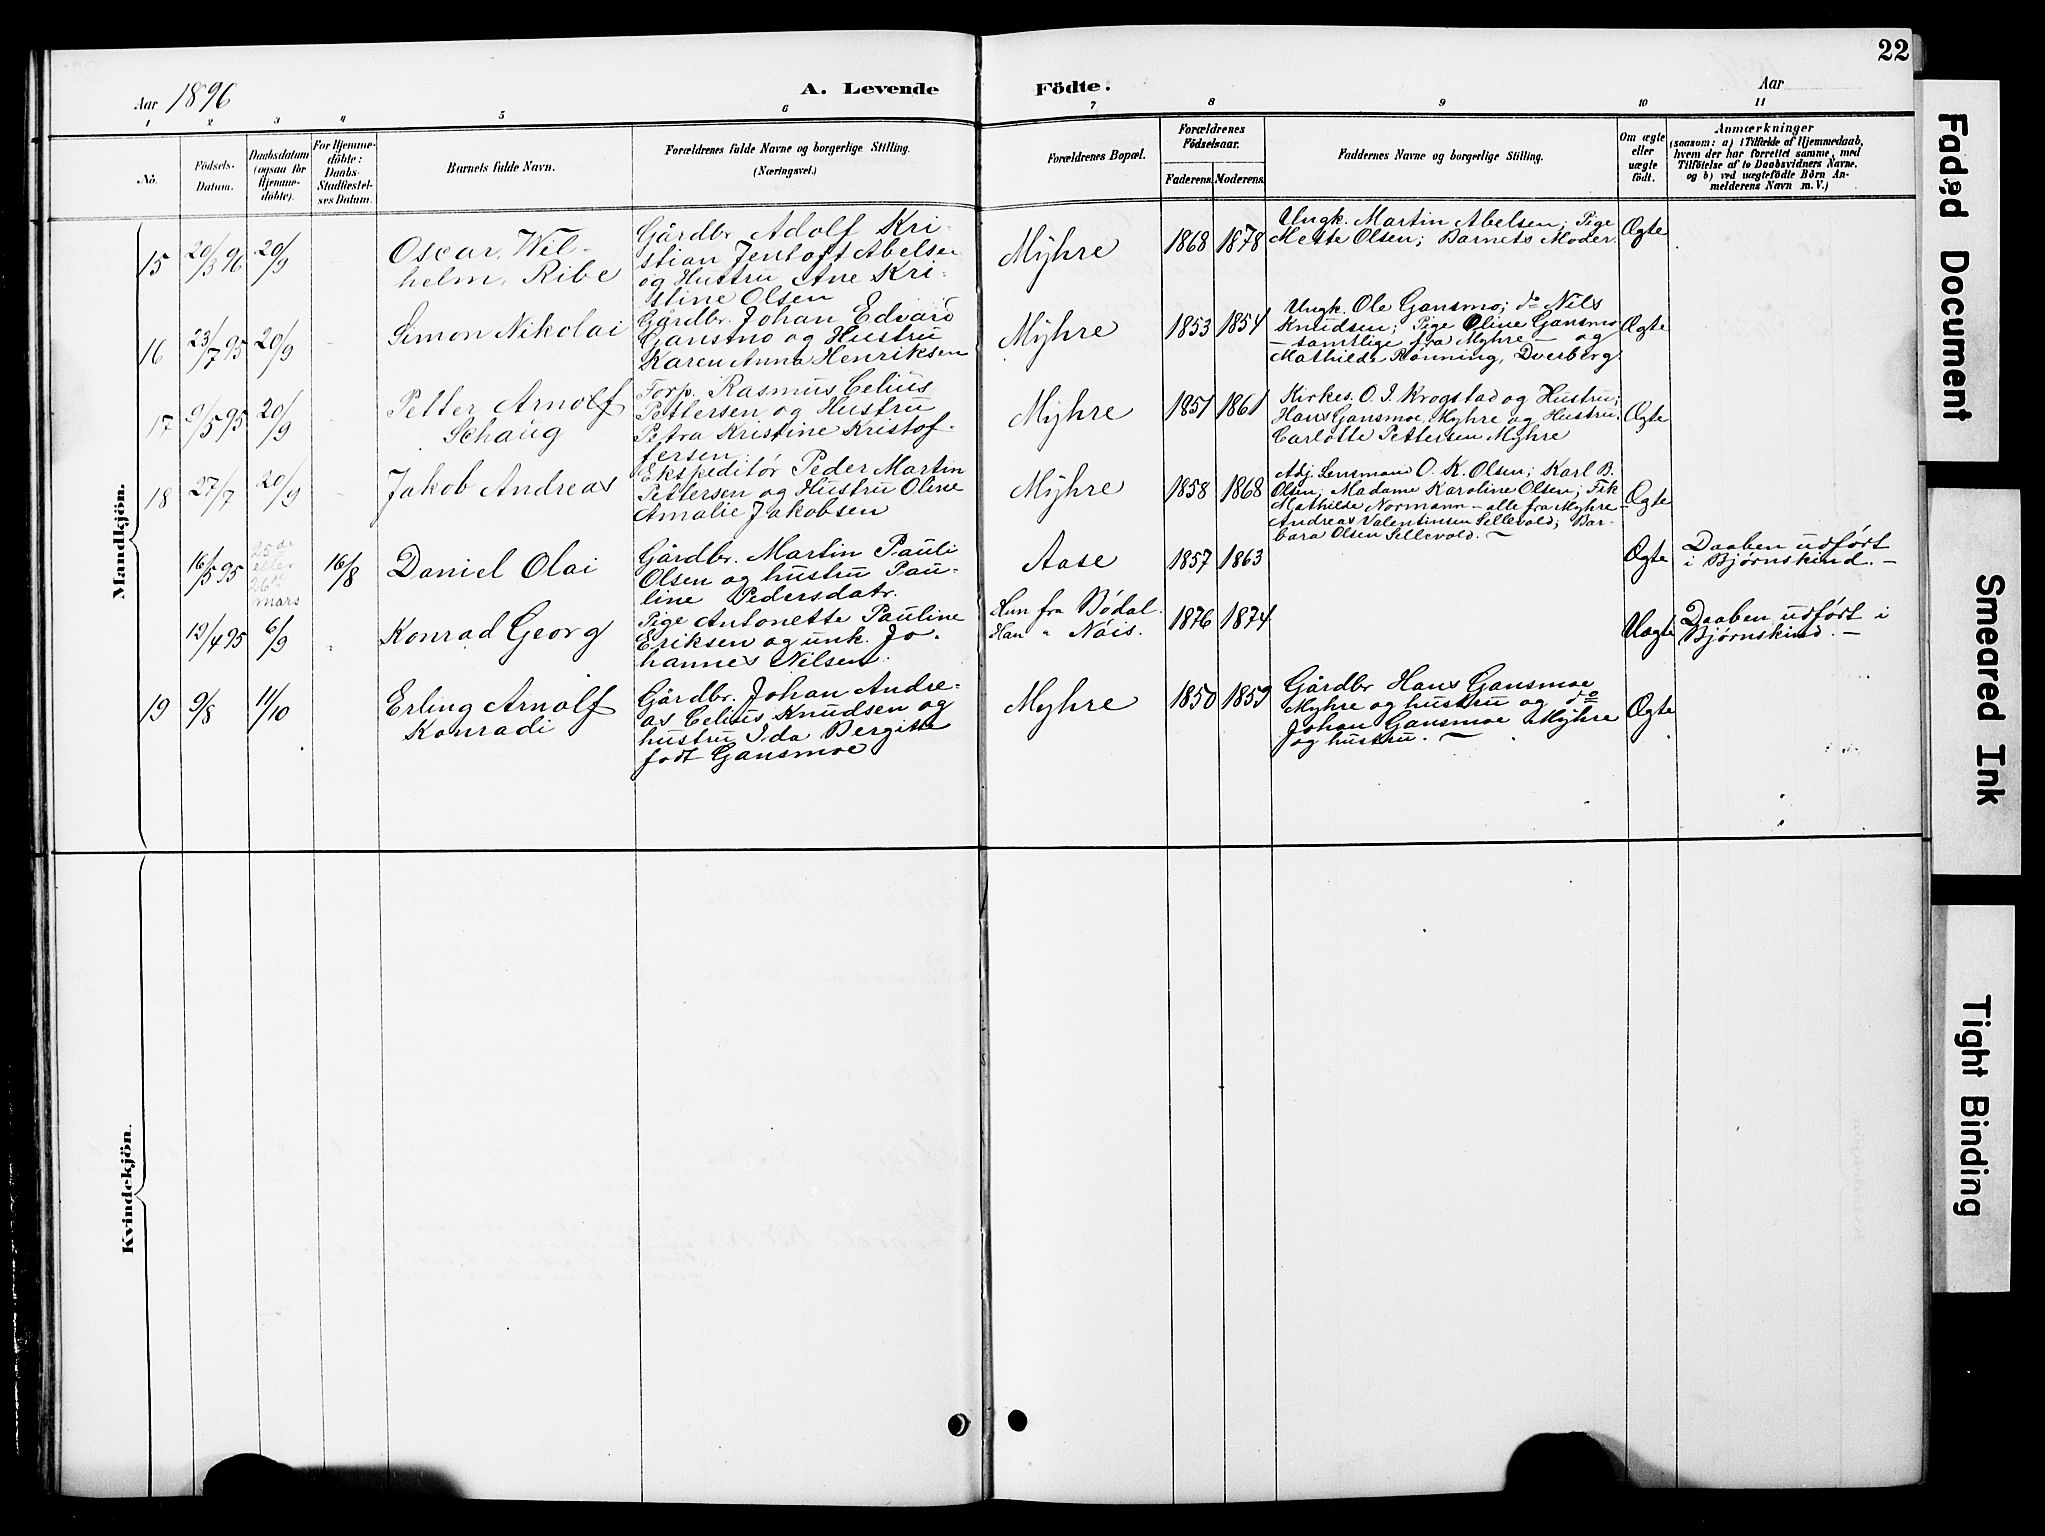 22
Aar 1896
A. Levende
Födte.
Aar
1 2 3 4 5 6 7 8 9 10 11
No.
Födsels-
Datum.
Daabsdatum
(ogsaa for
Hjemme-
döbte).
For Hjemme-
döbte:
Daabs-
Stadfæstel-
ses Datum.
Barnets fulde Navn.
Forældrenes fulde Navne og borgerlige Stilling.
(Næringsvei.)
Forældrenes Bopæl.
Forældrenes
Födselsaar.
Faderens. Moderens.
Faddernes Navne og borgerlige Stilling.
Om ægte
eller
uægte
födt.
Anmærkninger
(saasom: a) i Tilfælde af Hjemmedaab,
hvem der har forrettet samme, med
Tilföielse af to Daabsvidners Navne.
og b) ved uægtefödte Börn An-
melderens Navn m. V.)
Mandkjön.
15 20/3 96 20/9
Oscar Wil-
helm Ribe
Gårdbr Adolf Kri-
stian Jentoft Abelsen
og Hustru Ane Kri-
stine Olsen
Myhre
1868 1878
Ungk. Martin Abelsen; Pige
Mette Olsen; Barnets Moder.
Ægte
16 23/7 95 20/9
Simon Nikolai
Gårdbr. Johan Edvard
Gansmo og Hustru
Karen Anna Henriksen
Myhre
1853 1854
Ungk. Ole Gansmo; do Nils
Knudsen; Pige Oline Gansmo
– samtlige fra Myhre – og
Mathilde Rönning, Dverberg
Ægte
17 9/5 95 20/9
Petter Arnolf
Schaug
Forp. Rasmus Celius
Pettersen og Hustru
Petra Kristine Kristof-
fersen
Myhre
1851 1861
Kirkes. O. J. Krogstad og Hustru;
Hans Gansmoe, Myhre og Hustru.
Carlotte Pettersen Myhre
Ægte
18 27/7 20/9
Jakob Andreas
Ekspeditør Peder Martin
Pettersen og Hustru Oline
Amalie Jakobsen
Myhre
1858 1868
Adj. Lensmand O. K. Olsen; Karl B.
Olsen; Madame Karoline Olsen; Frk
Mathilde Normann – alle fra Myhre –
Andreas Valentinsen Sellevold; Bar-
bara Olsen Sellevold. –
Ægte
16/5 95
25de
eller
26de
mars
16/8
Daniel Olai
Gårdbr. Martin Pauli
Olsen og hustru Pau-
line Pedersdatr.
Aase
1857 1863
Ægte
Daaben udført
i Bjørnskind. –
12/4 95 6/9
Konrad Georg
Pige Antonette Pauline
Eriksen og unk. Jo-
hannes Nilsen
Hun fra Bödal.
Han " Nöis.
1876 1874
Uægte
Daaben udført i
Bjørnskind. –
19 9/8 11/10
Erling Arnolf
Konradi
Gårdbr. Johan Andre-
as Celius Knudsen og
hustru Ida Bergitte
født Gansmoe
Myhre
1850 1859
Gårdbr Hans Gansmoe
Myhre og hustru og do
Johan Gansmoe Myhre
og hustru. –
Ægte
Kvindekjön.
Faded Document
Smeared Ink
Tight Binding